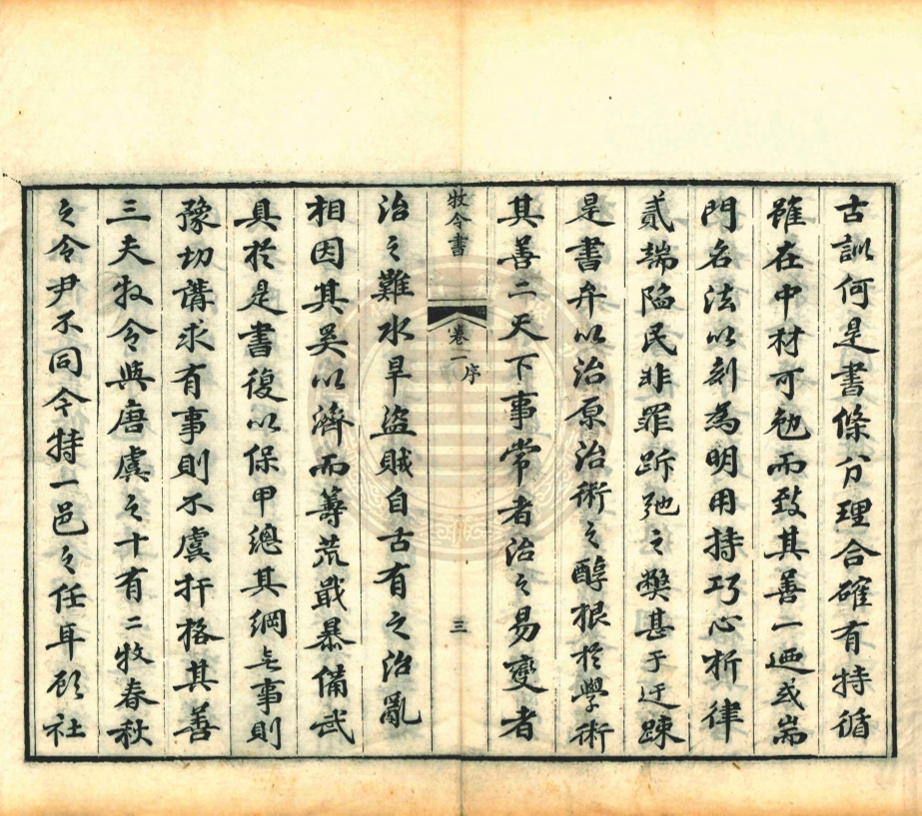 古訓何是書條分理合確有持循
雖在中材可勉而致其善一迺或耑
門名法以刻為明用持巧心析律
貳端陷民非罪跅弛之獘甚于迂踈
是書弁以治原治術之醇根於學術
其善二天下事常者治之易變者
牧令書
卷一 序
三
治之難水旱盜賊自古有之治亂
相因其奚以濟而籌荒戢暴備武
具於是書復以保甲總其綱無事則
豫切講求有事則不虞扞格其善
三夫牧令與唐虞之十有二牧春秋
之令尹不同今持一邑之任耳顧社